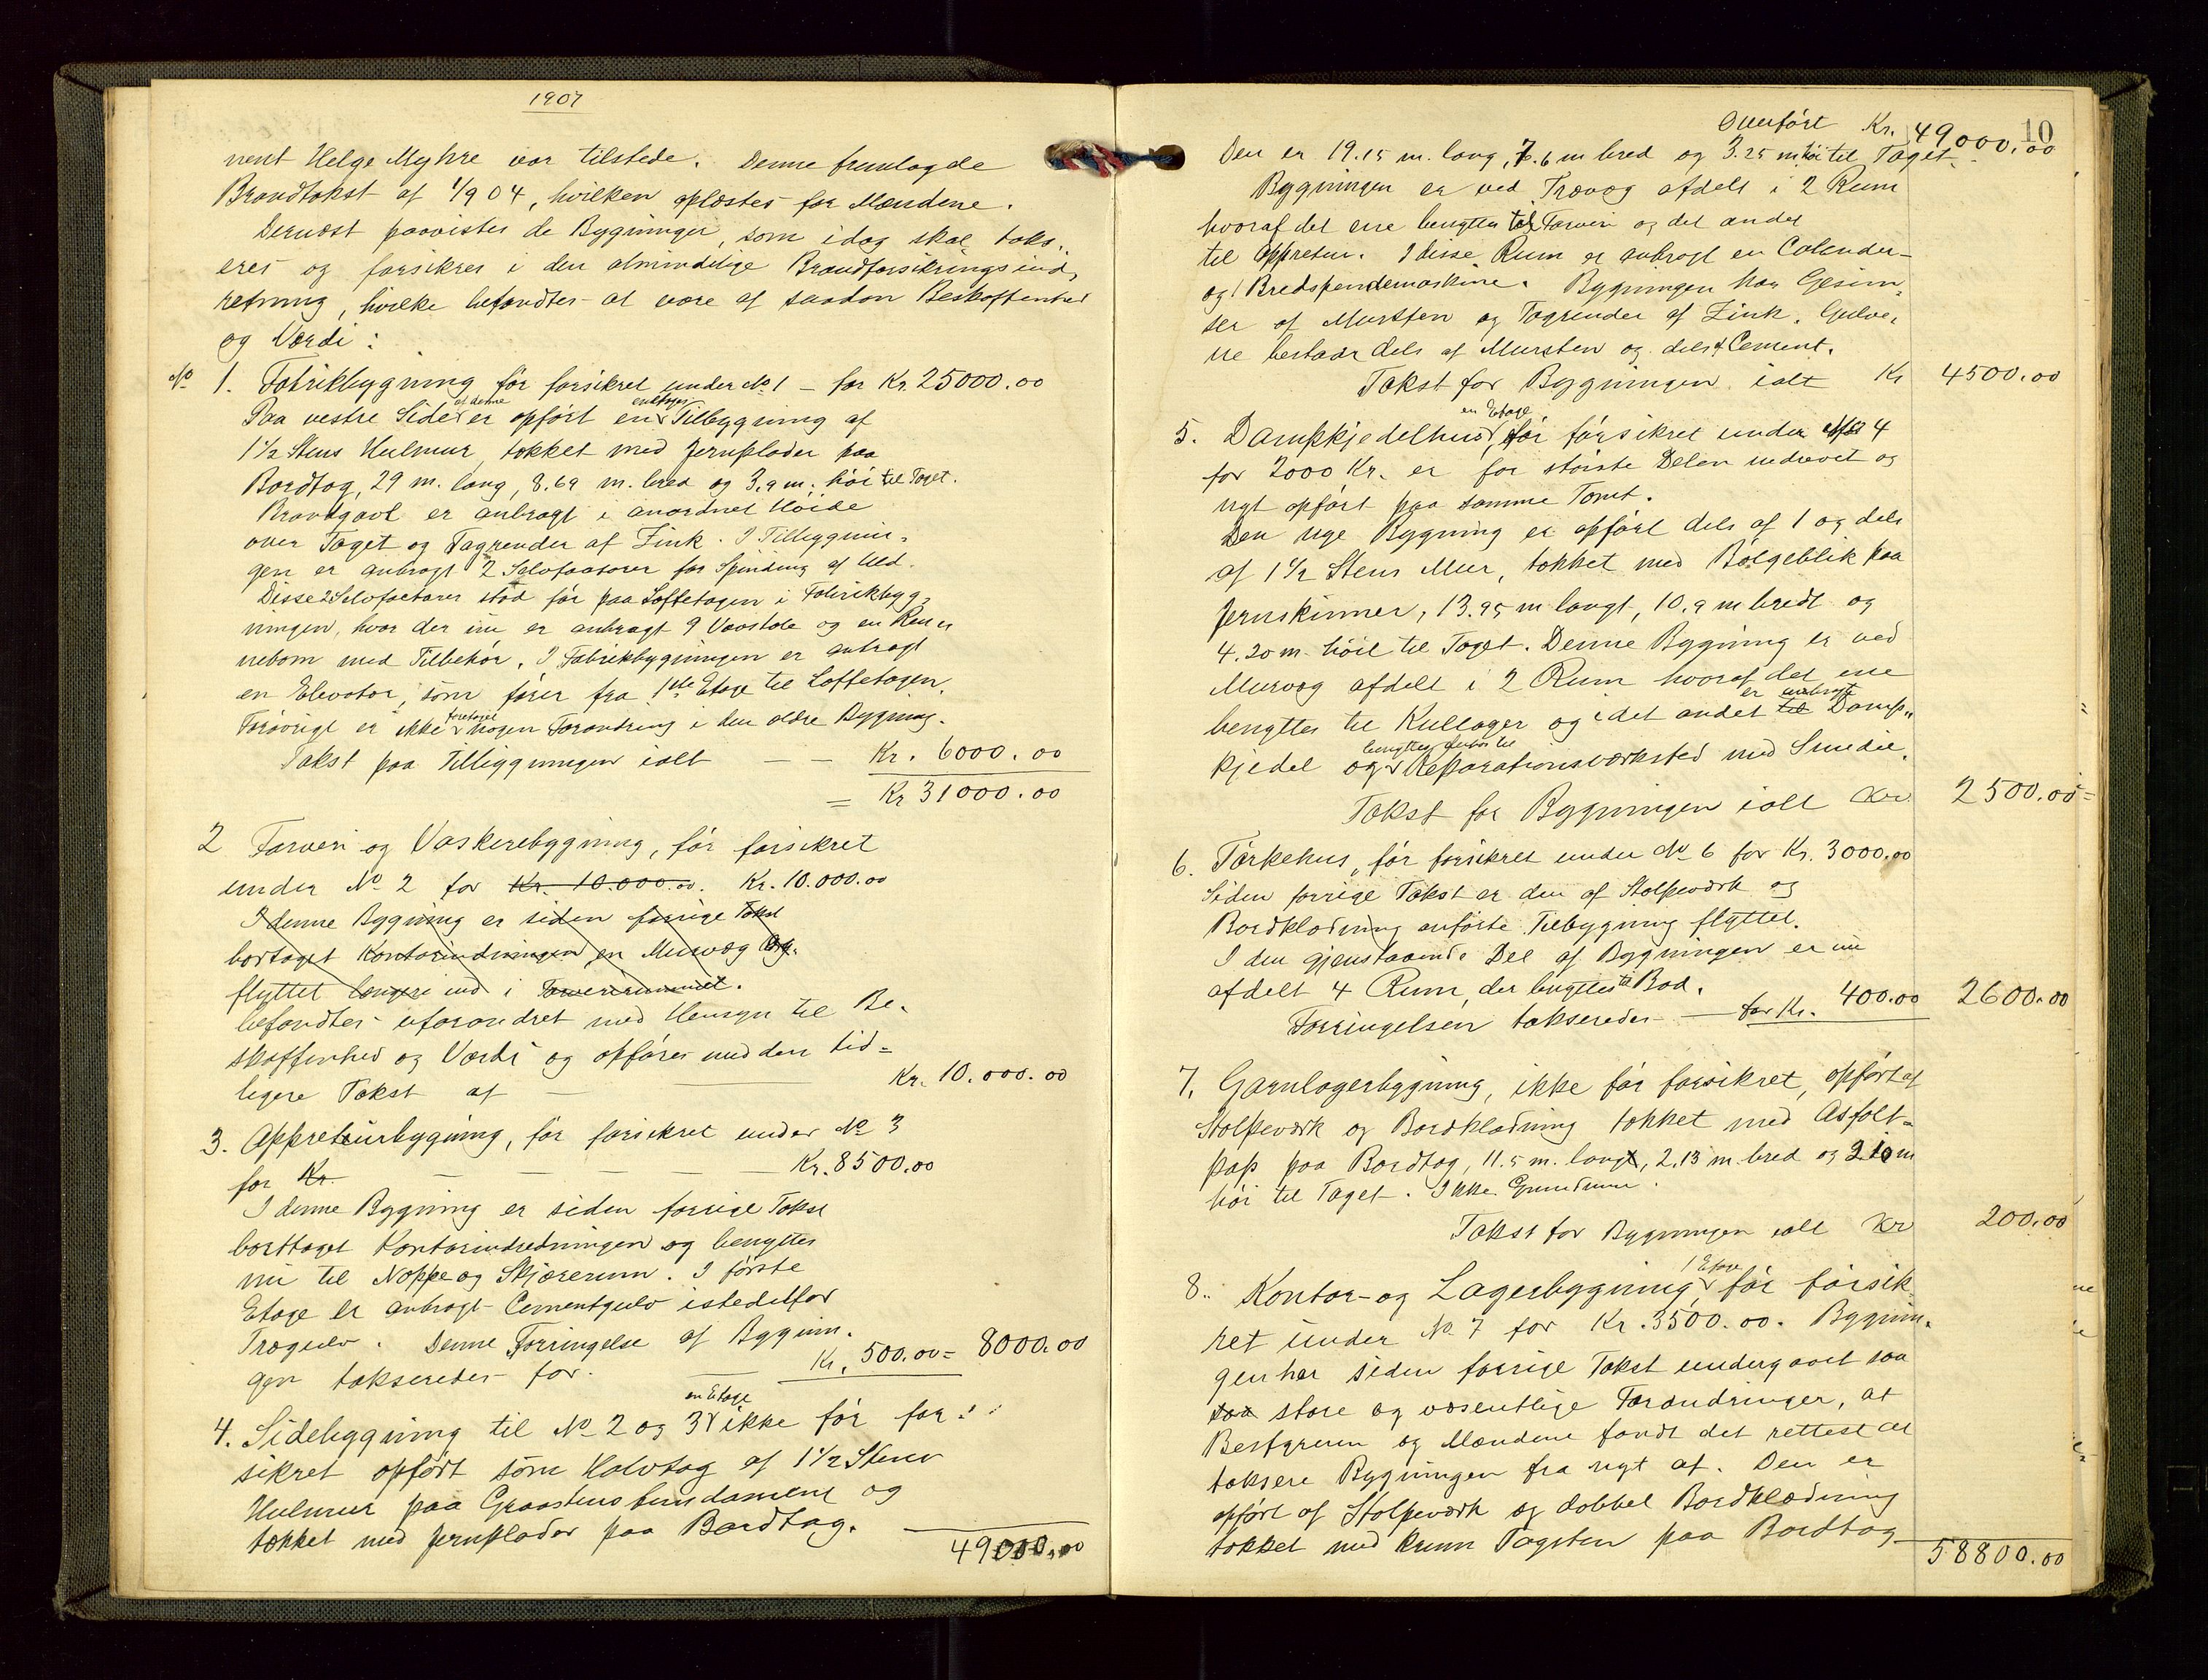 1907
nent Helge Myhre var tilstede. Denne fremlagde
Brandtakst af 1/9 04, hvilken oplæstes for Mændene.
Dernæst paavistes de Bygninger, som idag skal taks-
eres og forsikres i den almindelige Brandforsikringsind-
retning, hvilke befandtes at være af saadan Beskaffenhed
og Værdi:
No 1. Fabrikbygning før forsikret under No 1 – for Kr. 25000.00
Paa vestre Side af denne er opført en enetages Tilbygning af
1 1/2 Stens Hulmur, tækket med Jernplader paa
Bordtag, 29 m. lang, 8.69 m. bred og 3.9 m. høi til Taget.
Brandgavl er anbragt i anordnet Høide
over Taget og Tagrender af Zink. I Tilbygnin-
gen er anbragt 2 Selvfactorer for Spinding af Uld.
Disse 2 Selvfactorer stod før paa Loftetagen i Fabrikbyg-
ningen, hvor der nu er anbragt 9 Vævstole og en Ren
nebom med Tilbehør. I Fabrikbygningen er anbragt
en Elevator, som fører fra 1ste Etage til Loftetagen.
Forøvrigt er ikke foretaget nogen Forandring i den ældre Bygning.
Takst paa Tilbyggningen ialt — — Kr. 6000.00
= Kr 31000.00
2 Farveri og Vaskeribygning, før forsikret
under No 2 for Kr. 10.000.00. Kr. 10.000.00
I denne Bygning er siden forrige Takst
bortaget Kontorindredningen, en Murvæg og
flyttet længere ind i Farverirummet.
befandtes uforandret med Hensyn til Be-
skaffenhed og Værdi og opføres med den tid=
ligere Takst af — — Kr. 10.000.00
3. Appreturbygning, før forsikret under No 3
for Kr. — — — Kr. 8500.00
I denne Bygning er siden forrige Takst
borttaget Kontorindredningen og benyttes
nu til Noppe og Skjærerum. I første
Etage er anbragt Cementgulv istedetfor
Trægulv. Denne Forringelse af Bygnin-
gen takseredes for. — Kr. 500.00 = 8000.00
4. Sidebygning til No 2 og 3 en Etage ikke før for-
sikret opført som Halvtag af 1 1/2 Stens
Hulmur paa Graastensfundament og
tækket med Jernplader paa Bordtag.
49000.00
10
Overført Kr. 49000.00
Den er 19.15 m. lang, 7.6 m bred og 3.25 m. høi til Taget.
Bygningen er ved Trævæg afdelt i 2 Rum
hvoraf det ene benyttes til Farveri og det andet
til Appretur. I disse Rum er anbragt en Calender-
og 1 Bredspendemaskine. Bygningen har Gesim-
ser af Mursten og Tagrender af Zink. Gulve-
ne bestaar dels af Mursten og dels af Cement.
Takst for Bygningen ialt Kr 4500.00
5. Dampkjedelhus en Etage, før forsikret under No 4
for 2000 Kr. er for største Delen nedrevet og
nyt opført paa samme Tomt.
Den nye Bygning er opført dels af 1 og dels
af 1 1/2 Stens Mur, tækket med Bølgeblik paa
Jernskinner, 13.95 m langt, 10.9 m bredt og
4.20 m høit til Taget. Denne Bygning er ved
Murvæg afdelt i 2 Rum hvoraf det ene
benyttes til Kullager og i det andet til er anbragt Damp-
kjedel og benyttes til Reparationsværksted med Smedie.
Takst for Bygningen ialt Kr. 2500.00
6. Tørkehus, før forsikret under No 6 for Kr. 3000.00
Siden forrige Takst er den af Stolpeværk og
Bordklædning anførte Tilbygning flyttet.
I den gjenstaaende Del af Bygningen er nu
afdelt 4 Rum, der benyttes til Bod.
Forringelsen takseredes — for Kr. 400.00 2600.00
7. Garnlagerbygning, ikke før forsikret, opført af
Stolpeværk og Bordklædning tækket med Asfalt-
pap paa Bordtag, 11.5 m. lang, 2.13 m. bred og 2.10 m
høi til Taget. Ikke Grundmur.
Takst for Bygningen ialt Kr 200.00
8. Kontor- og Lagerbygning 1 Etage, før forsik
ret under No. 7 for Kr. 3500.00. Bygnin-
gen har siden forrige Takst undergaaet saa
saa store og væsentlige Forandringer, at
Bestyreren og Mændene fandt det rettest at
taksere Bygningen fra nyt af. Den er
opført af Stolpeværk og dobbel Bordklædning
tækket med krum Tagsten paa Bordtag
58800.00